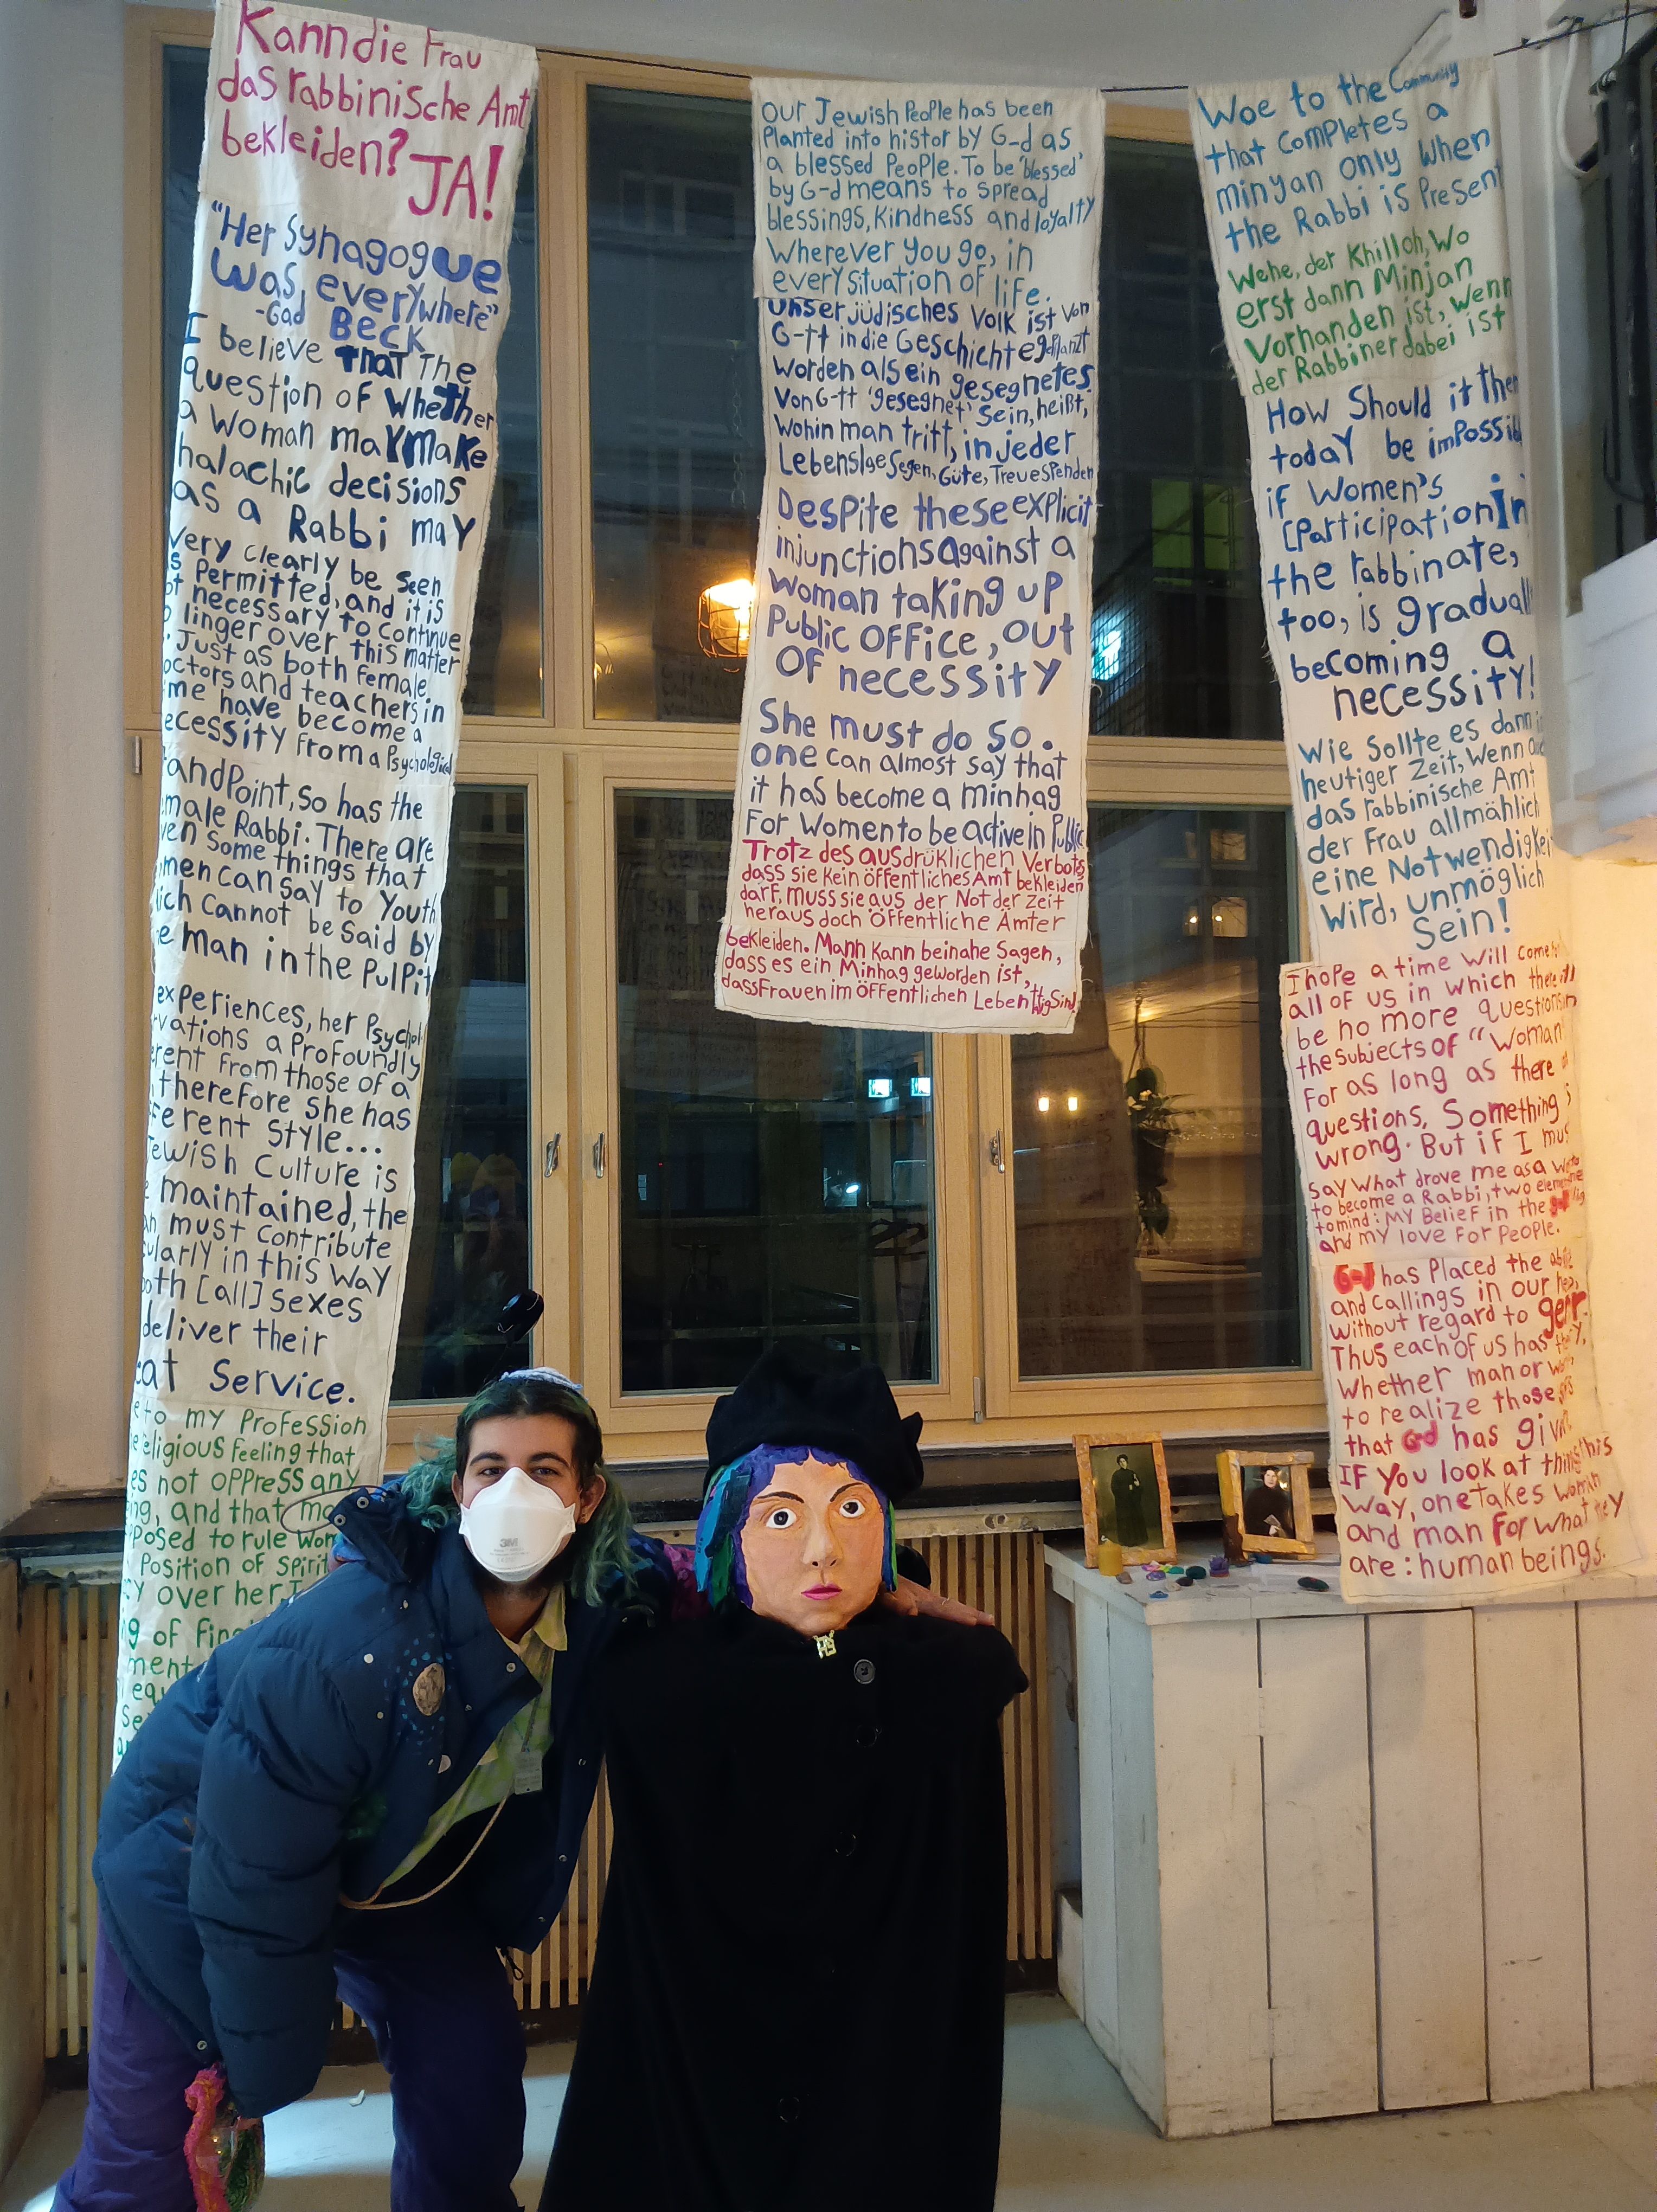 Kann die Frau
das rabbinische Amt
bekleiden? JA!
"Her Synagogue
was, everywhere"
-Gad Beck
I believe that the
question of whether
a woman may make
halachic decisions
as a Rabbi may
very clearly be seen
as permitted, and it is
not necessary to continue
to linger over this matter
Just as both female
doctors and teachers in
time have become a
necessity from a Psychological
standPoint, so has the
female Rabbi. There are
even some things that
women can say to Youth
which cannot be said by
the man in the PulPit
experiences, her Psychol
rvations a Profoundly
erent from those of a
therefore she has
fferent style...
Jewish Culture is
e maintained, the
an must contribute
cularly in this way
both [all] sexes
deliver their
eat Service.
e to my Profession
religious feeling that
es not oppress any
ing, and that ma
posed to rule wom
Position of spirit
cy over her. I
g of fin
ment
equ
se
our Jewish PeoPle has been
Planted into histor by G-d as
a blessed PeoPle. To be 'blessed'
by G-d means to spread
blessings, Kindness and loyalty
Wherever you go, in
every situation of life.
Unser jüdisches Volk ist von
G-tt in die Geschichte geplanzt
worden als ein gesegnetes
Von G-tt 'gesegnet' Sein, heißt,
Wohin man tritt, in jeder
Lebenslge Segen, Güte, Treue spenden
Despite these explicit
injunctions against a
woman taking up
Public office, out
of necessity
She must do so.
one can almost say that
it has become a minhag
For Women to be active in Public
Trotz des ausdrüklichen Verbots
dass sie kein öffentliches Amt bekleiden
darf, muss sie aus der Not der Zeit
heraus doch Öffentliche Ämter
bekleiden. Mann kann beinahe Sagen,
dass es ein Minhag geworden ist,
dass Frauen im Öffentlichen Leben ttig Sind
Woe to the Community
that completes a
minyan only when
the Rabbi is Present
Wehe, der Khilloh, Wo
erst dann Minjan
Vorhanden ist, Wenn
der Rabbiner dabei ist
How Should it then
today be impossibl
if Women's
[Participation] in
the rabbinate,
too, is graduall
becoming a
necessity!
Wie Sollte es dann in
heutiger Zeit, Wenn au
das rabbinische Amt
der Frau allmählich
eine Notwendigkei
Wird, unmöglich
Sein!
I hope a time will come for
all of us in which there will
be no more questions on
the subjects of "Woman"
For as long as there
questions, Something is
wrong. But if I mus
say what drove me as a woman
to become a Rabbi, two elements
to mind: My Belief in the
and my love for People.
G-d has Placed the abil
and callings in our hea
without regard to
Thus each of us has the
whether man or wo
to realize those
that G-d has given
If you look at things this
way, one takes woman
and man for what they
are: human beings.
3M